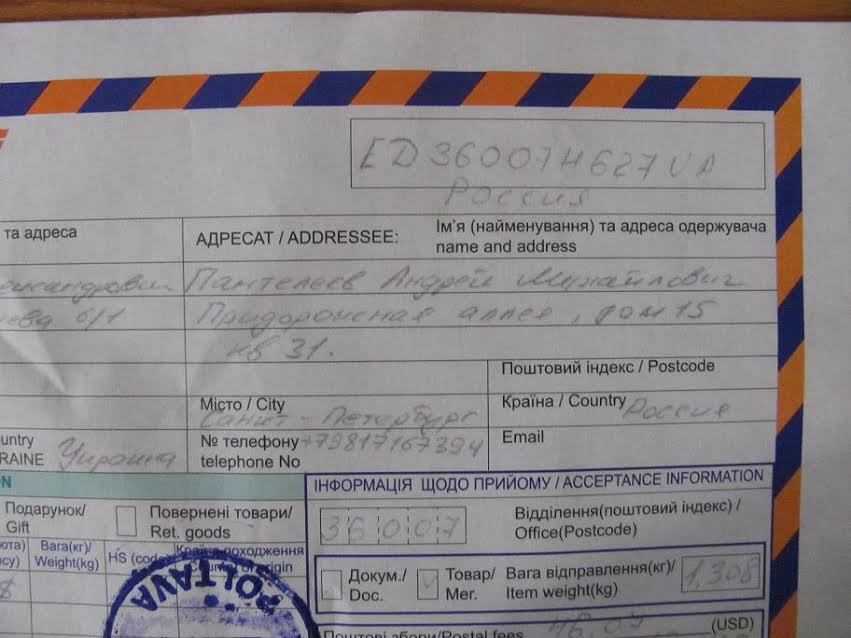 ED360074627UA
Россия
та адреса
АДРЕСАТ / ADDRESSEE:
Ім'я (найменування) та адреса одержувача
name and address
Пантелеев Андрей Михайлович
6/1
Придорожная аллея, дом 15
кв 31.
Поштовий індекс / Postcode
Місто / City
Санкт-Петербург
Країна / Country Россия
№ телефону +79817167394
telephone No
Email
untry
RAINE Украина
ІНФОРМАЦІЯ ЩОДО ПРИЙОМУ / ACCEPTANCE INFORMATION
Подарунок/
Gift
Повернені товари/
Ret. goods
36007
Відділення(поштовий індекс) /
Office(Postcode)
Вага(кг)/
Weight(kg)
HS (code)
Країна походження
Country of origin
Докум./
Doc.
Товар/
Mer.
Вага відправлення(кг)/
Item weight(kg)
1,308
POLTAVA
Поштові збори/Postal fees
(USD)